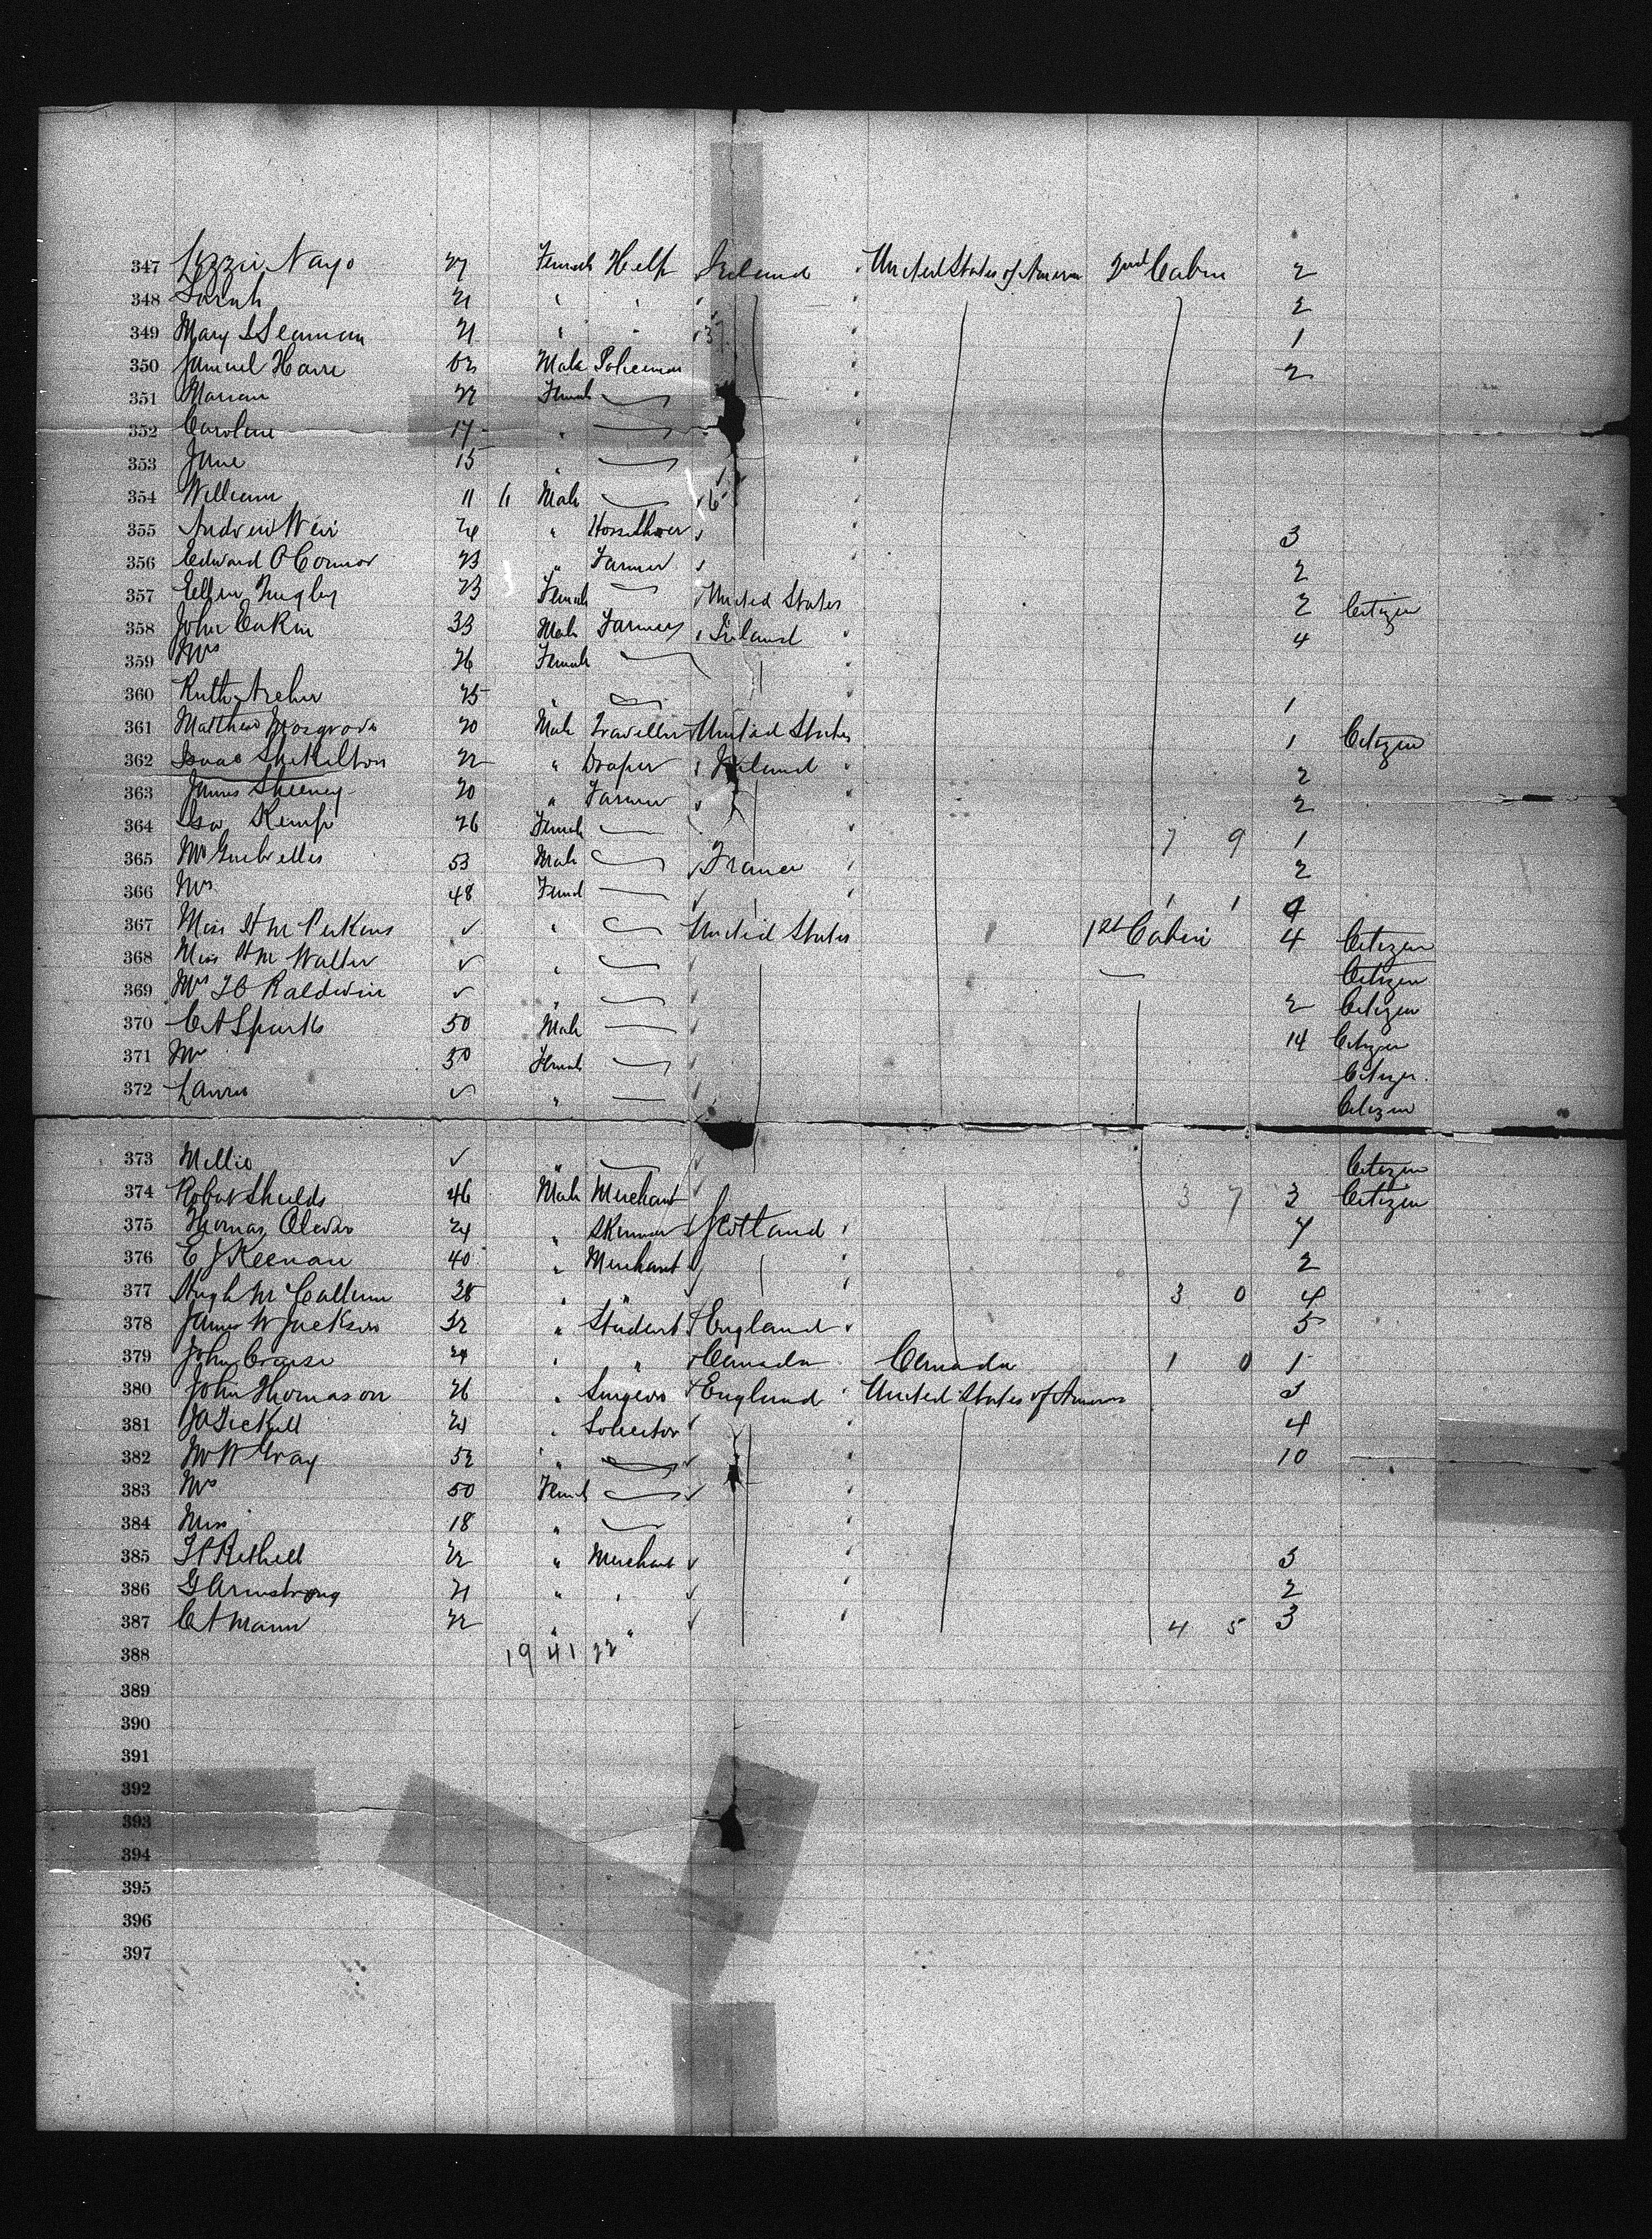 347 Lizzie Nayo 27 Female Help Ireland United States of America 2nd Cabin 2
348 Sarah 21 " " 2
349 Mary Seaman 21 " " 1
350 Samuel Hare 52 Male Policeman 2
351 Marian 22 Female
352 Caroline 17 "
353 Jane 15 "
354 William 11 11 Male 6
355 Andrew Weir 24 " Horseshoer 3
356 Edward O'Connor 23 " Farmer 2
357 Ellen 23 Female United States 2 Citizen
358 John Eakin 33 Male Farmer Ireland 4
359 Mrs 26 Female
360 Ruth Archer 25 " 1
361 Matthew Mosgrove 20 Male Traveller United States 1 Citizen
362 Isaac Shekelton 22 " Draper Ireland 2
363 James Sheeney 20 " Farmer 2
364 Isa Kemp 26 Female 7 9 1
365 Mr 53 Male France 2
366 Mrs 48 Femal 1 1 4
367 Miss H M Perkins " United States 1st Cabin 4 Citizen
368 Miss H M Walter " Citizen
369 Mrs Baldwin " 2 Citizen
370 C A Sparks 50 Male 14 Citizen
371 Mrs 50 Female Citizen
372 Laura " Citizen
373 Millie " Citizen
374 Robert Shields 46 Male Merchant 3 7 3 Citizen
375 Thomas 24 " Skinner Scotland 7
376 E J Keenan 40 " Merchant 2
377 Hugh McCallum 38 " " 3 0 4
378 James W Jackson 32 " Student England 5
379 John Cruise 24 " " Canada Canada 1 0 1
380 John Thomason 26 " Surgeon England United States of America 3
381 Tickell 24 " Solicitor 4
382 Mr W Gray 52 " 10
383 Mrs 50 Femal
384 Miss 18 "
385 Bethell 22 " Merchant 3
386 G Armstrong 21 " " 2
387 C A Mann 22 " " 4 5 3
388 19 41 22
389
390
391
392
393
394
395
396
397